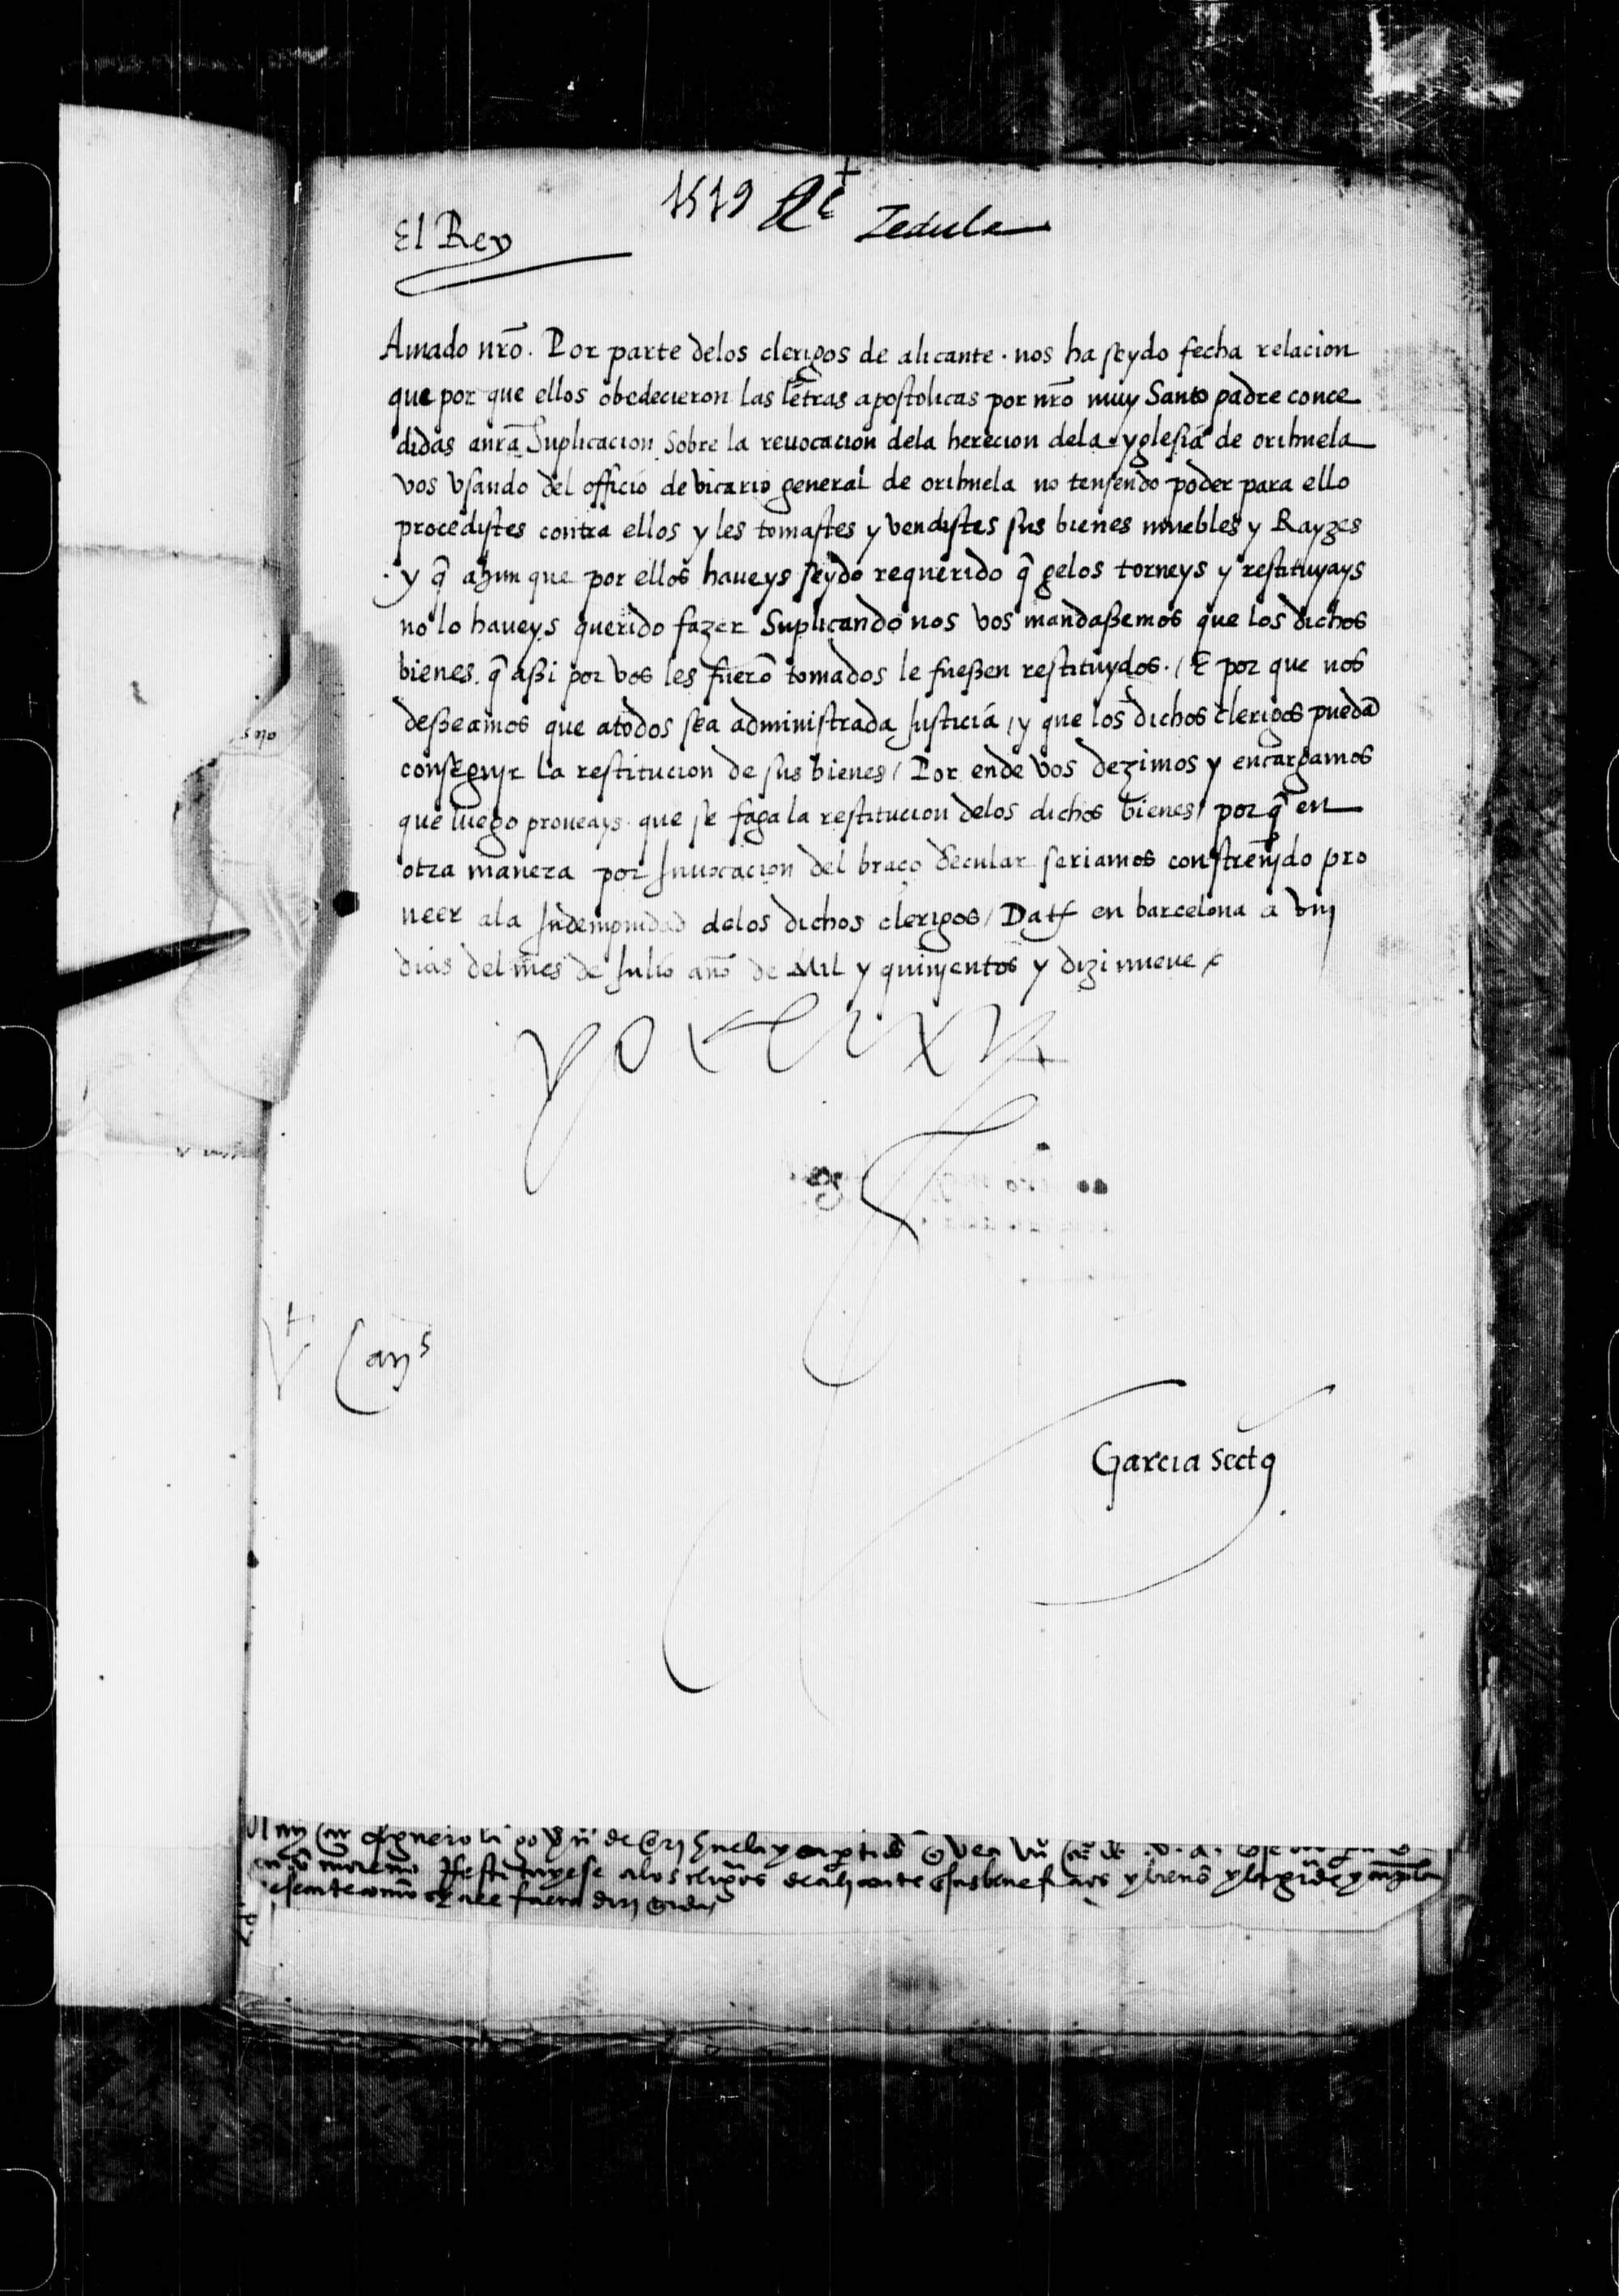 1519 Rl Zedula
El Rey
Amado nr̃o. Por parte delos clerigos de alicante. nos ha seydo fecha relacion
que por que ellos obedecieron las letras apostolicas por nr̃o muy Santo padre conce
didas anr̃a Suplicacion Sobre la reuocacion dela herecion dela yglesia de orihuela
vos vsando del officio de vicario general de orihuela no teniendo poder para ello
procedistes contra ellos y les tomastes y vendistes sus bienes muebles y Rayzes
. y q̃ ahun que por ellos haueys seydo requerido q̃ gelos torneys y restituyays
no lo haueys querido fazer Suplicando nos vos mandassemos que los dichos
bienes. q̃ assi por vos les fuerõ tomados le fuessen restituydos. / E por que nos
desseamos que atodos sea administrada Justicia / y que los dichos clerigos puedã
conseguyr la restitucion de sus bienes / Por ende vos dezimos y encargamos
que luego proueays. que se faga la restitucion delos dichos bienes / por q̃ en
otra manera por Inuocacion del braço Secular seriamos constrenydo pro
ueer ala Indempnidad delos dichos clerigos / Dat̃ en barcelona a viij
dias del mes de Julio año de Mil y quinyentos y dizinueue
yo el rey
Garcia sect9